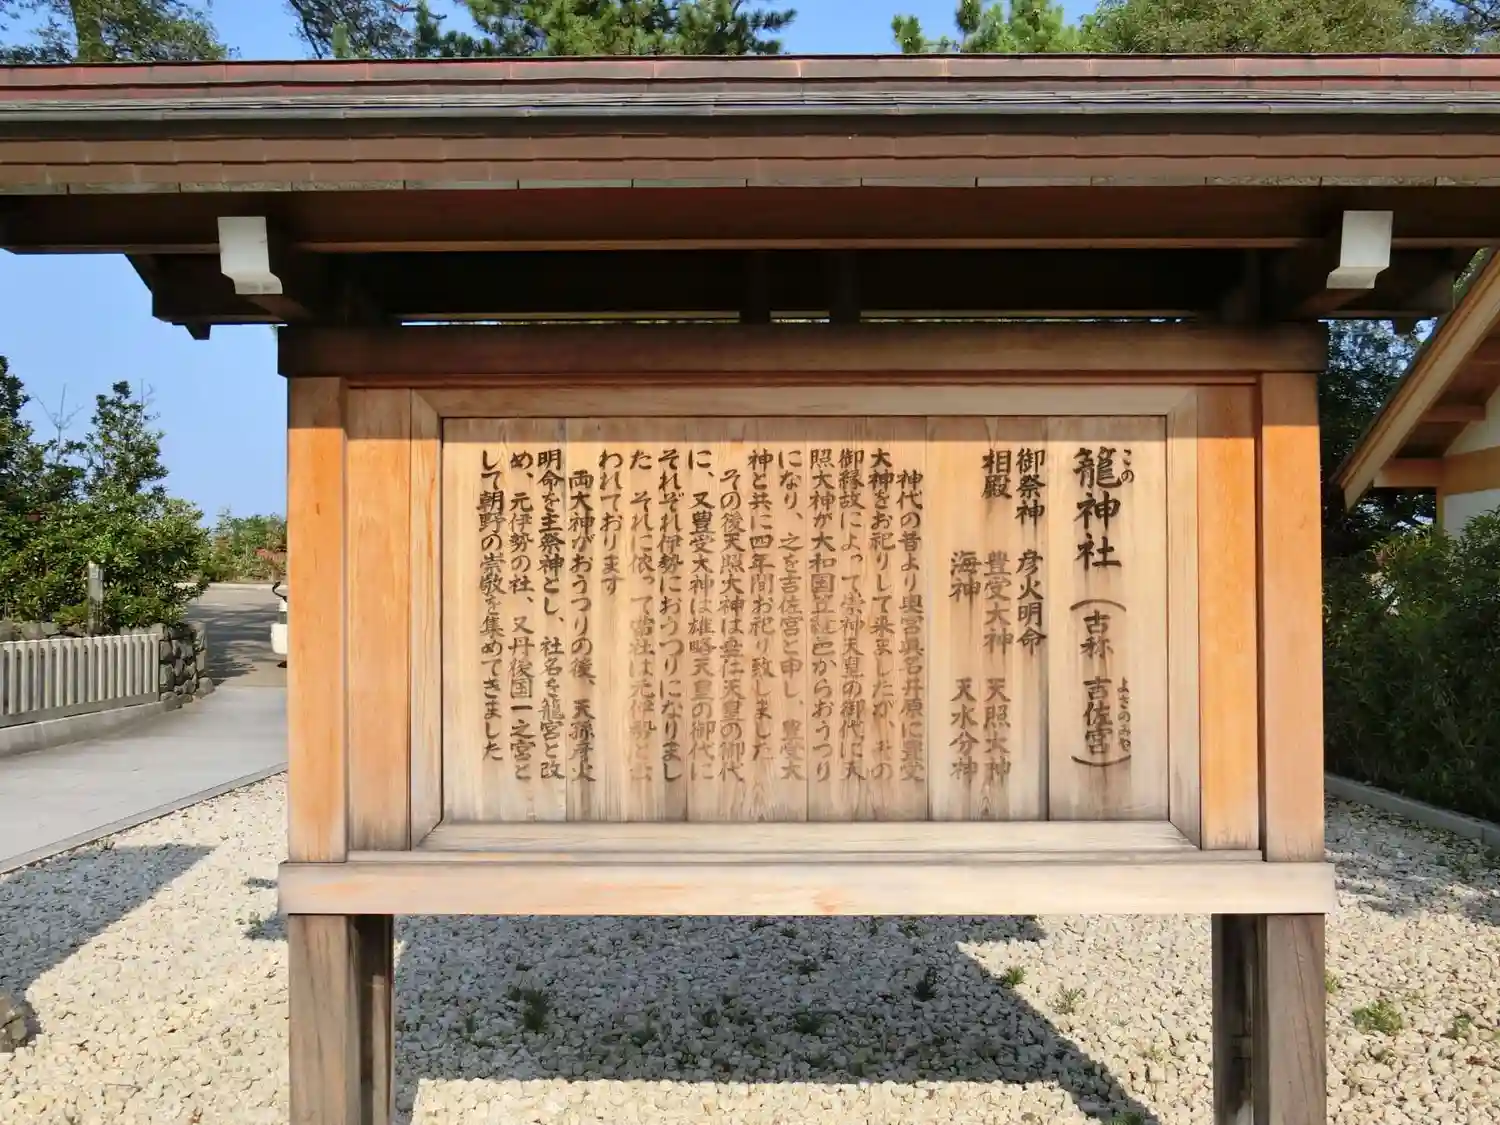 籠神社（古称　吉佐宮）
この
よさのみや
御祭神　彦火明命
相殿　豊受大神　天照大神
海神　天水分神
神代の昔より奥宮眞名井原に豊受
大神をお祀りして来ましたが、その
御縁故によって崇神天皇の御代に天
照大神が大和国笠縫邑からおうつり
になり、之を吉佐宮と申し、豊受大
神と共に四年間お祀り致しました
その後天照大神は垂仁天皇の御代
に、又豊受大神は雄略天皇の御代に
それぞれ伊勢におうつりになりまし
た　それに依って当社は元伊勢と云
われております
両大神がおうつりの後、天孫彦火
明命を主祭神とし、社名を籠宮と改
め、元伊勢の社、又丹後国一之宮と
して朝野の崇敬を集めてきました